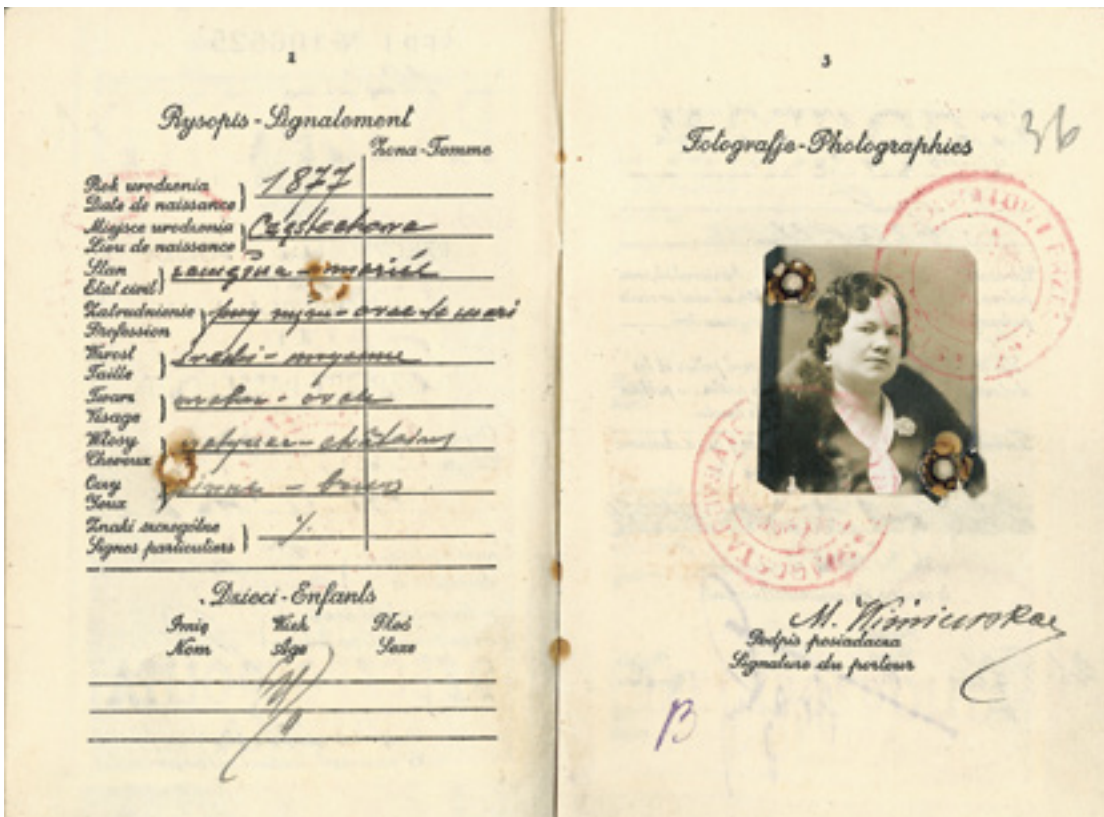 2
Rysopis - Signalement
Żona - Femme
Rok urodzenia
Date de naissance
1877
Miejsce urodzenia
Lieu de naissance
Częstochowa
Stan
Etat civil
zamężna - mariée
Zatrudnienie
Profession
przy mężu - avec le mari
Wzrost
Taille
średni - moyenne
Twarz
Visage
ovale
Włosy
Cheveux
châtains
Oczy
Yeux
piwne - bruns
Znaki szczególne
Signes particuliers
Dzieci - Enfants
Imię Wiek Płeć
Nom Age Sexe
3
Fotografje - Photographies
36
M. Wiśniewska
Podpis posiadacza
Signature du porteur
B